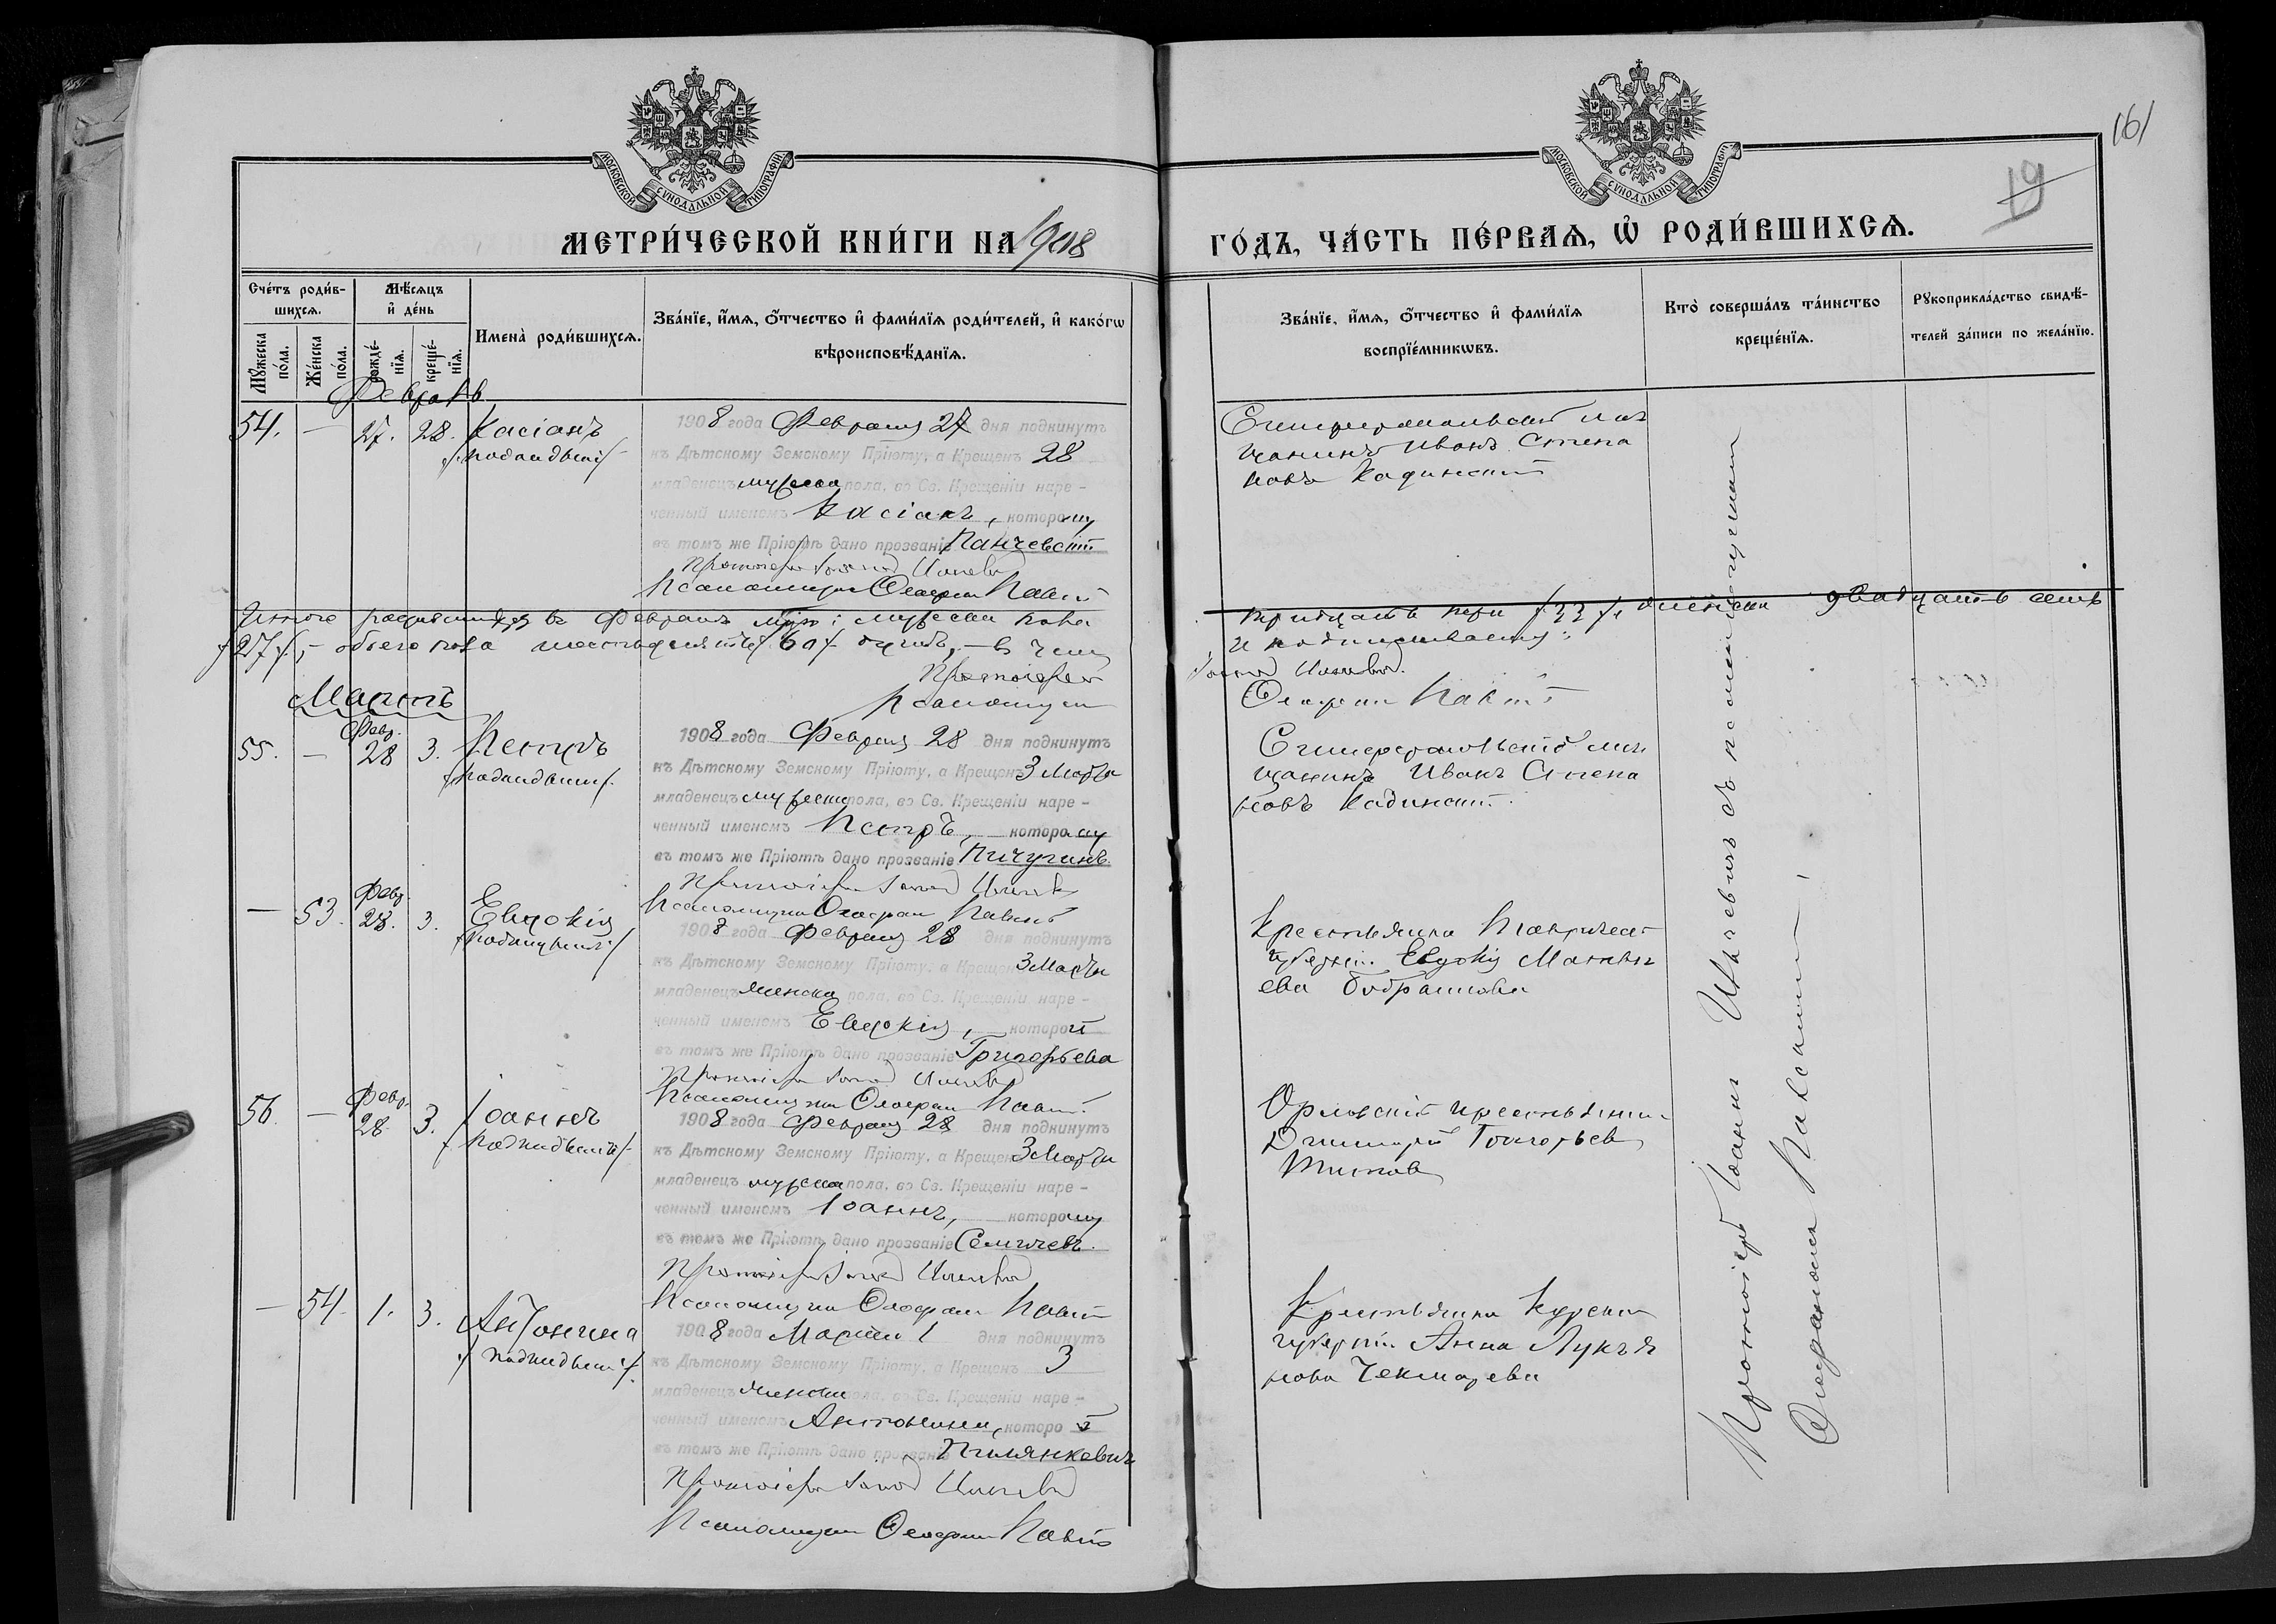 161
19
МОСКОВСКОЙ СУНОДАЛЬНОЙ ТИПОГРАФІИ
МОСКОВСКОЙ СУНОДАЛЬНОЙ ТИПОГРАФІИ
МЕТРИ́ЧЕСКОЙ КНИ́ГИ НА 1908
ГО́ДЪ, ЧА́СТЬ ПЕ́РВАѦ, Ѡ҆ РОДИ́ВШИХСѦ.
Сче́тъ роди́в-
шихсѧ.
Мѣ́сѧцъ
и҆ де́нь
Мꙋ́жеска
по́ла.
Же́нска
по́ла.
рожде́-
нїѧ.
креще́-
нїѧ.
Имена̀ роди́вшихсѧ.
Зва́нїе, и҆́мѧ, ѻ҆́тчество и҆ фами́лїѧ роди́телей, и҆ како́гѡ
вѣроисповѣ́данїѧ.
Зва́нїе, и҆́мѧ, ѻ҆́тчество и҆ фами́лїѧ
воспрїе́мникѡвъ.
Кто̀ соверша́лъ та́инство
креще́нїѧ.
Рꙋкоприкла́дство свидѣ́-
телей за́писи по жела́нїю.
Февраль
54. — 27. 28. Касіанъ
/подкидышъ/
1908 года Февраля 27 дня подкинутъ
къ Дѣтскому Земскому Пріюту, а Крещенъ 28
младенецъ мужеска пола, во Св. Крещеніи наре-
ченный именемъ Касіанъ, которому
въ томъ же Пріютѣ дано прозваніе Панчевскій
Протоіерей Іоаннъ
Псаломщикъ
Симферопольскій мѣ
щанинъ Иванъ Степа
новъ Кадинскій
Итого родившихся въ Февралѣ мѣс: мужеска пола
тридцать три /33/, женска двадцать семь
/27/, — обоего пола шестьдесятъ /60/ душъ, — въ чемъ
и подписываемся:
Протоіерей Іоаннъ
Псаломщикъ
Мартъ
55. — Февр. 28 3. Петръ
/подкидышъ/
1908 года Февраля 28 дня подкинутъ
къ Дѣтскому Земскому Пріюту, а Крещенъ 3 Марта
младенецъ мужеска пола, во Св. Крещеніи наре-
ченный именемъ Петръ, которому
въ томъ же Пріютѣ дано прозваніе Пичугинъ.
Протоіерей Іоаннъ
Псаломщикъ
Симферопольскій мѣ
щанинъ Иванъ Степа
новъ Кадинскій
— 53. Февр. 28. 3. Евдокія
/подкидышъ/
1908 года Февраля 28 дня подкинутъ
къ Дѣтскому Земскому Пріюту, а Крещенъ 3 Марта
младенецъ женска пола, во Св. Крещеніи наре-
ченный именемъ Евдокія, которой
въ томъ же Пріютѣ дано прозваніе Григорьева
Протоіерей Іоаннъ
Псаломщикъ
Крестьянка Таврическ
губерніи Евдокія Матвѣ
ева
56. — Февр. 28. 3. Іоаннъ
/подкидышъ/
1908 года Февраля 28 дня подкинутъ
къ Дѣтскому Земскому Пріюту, а Крещенъ 3 Марта
младенецъ мужеска пола, во Св. Крещеніи наре-
ченный именемъ Іоаннъ, которому
въ томъ же Пріютѣ дано прозваніе
Протоіерей Іоаннъ
Псаломщикъ
Орловскій крестьянинъ
Димитрій Григорьевъ
Титовъ
— 54. 1. 3. Антонина
/подкидышъ/
1908 года Марта 1 дня подкинутъ
къ Дѣтскому Земскому Пріюту, а Крещенъ 3
младенецъ женска пола, во Св. Крещеніи наре-
ченный именемъ Антонина, которой
въ томъ же Пріютѣ дано прозваніе
Протоіерей Іоаннъ
Псаломщикъ
Крестьянка Курской
губерніи Анна Лукья
нова Чекмарева
Протоіерей Іоаннъ съ псаломщикомъ